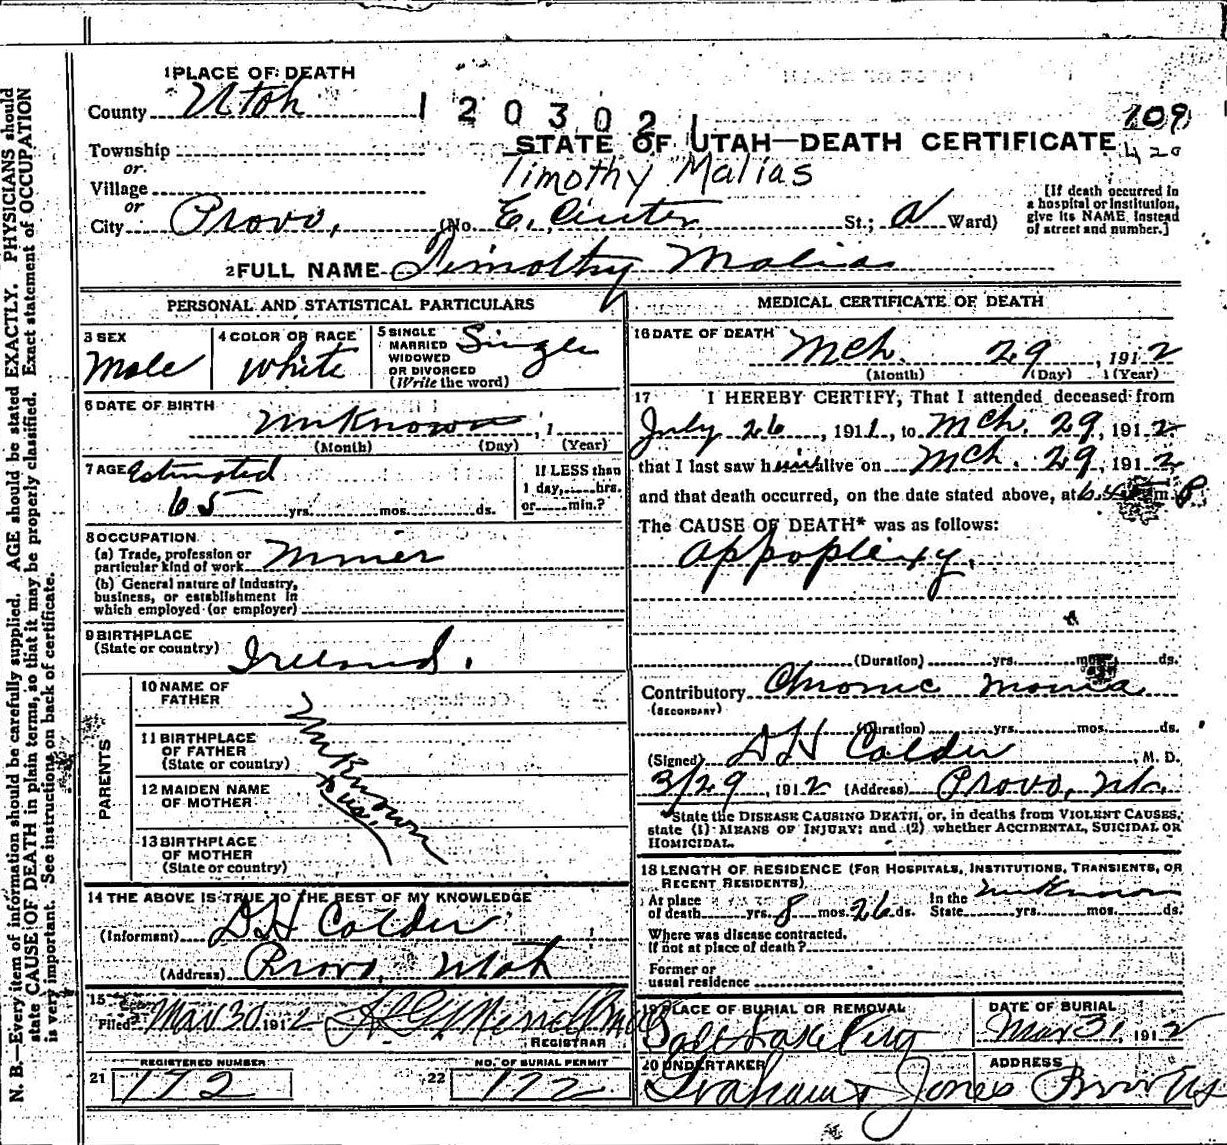 1 PLACE OF DEATH
County Utah
1 2 0 3 0 2 1
109
STATE OF UTAH—DEATH CERTIFICATE
420
Township
or
Village
Timothy Malias
or
City Provo, (No. E. Center St.; Ward)
[If death occurred in
a hospital or institution,
give its NAME instead
of street and number.]
2 FULL NAME Timothy Malias
PERSONAL AND STATISTICAL PARTICULARS
3 SEX
Male
4 COLOR OR RACE
White
5 SINGLE
MARRIED
WIDOWED
OR DIVORCED
(Write the word)
Single
6 DATE OF BIRTH
Unknown, 1
(Month) (Day) (Year)
7 AGE Estimated
65 yrs. mos. ds.
If LESS than
1 day, hrs.
or min.?
8 OCCUPATION
(a) Trade, profession or
particular kind of work Miner
(b) General nature of Industry,
business, or establishment in
which employed (or employer)
9 BIRTHPLACE
(State or country) Ireland.
PARENTS
10 NAME OF
FATHER
11 BIRTHPLACE
OF FATHER
(State or country)
12 MAIDEN NAME
OF MOTHER
13 BIRTHPLACE
OF MOTHER
(State or country)
Unknown
to us.
14 THE ABOVE IS TRUE TO THE BEST OF MY KNOWLEDGE
(Informant) D H Calder
(Address) Provo, Utah
15
Filed Mar 30 1912
REGISTRAR
REGISTERED NUMBER
21 172
NO. OF BURIAL PERMIT
22 172
MEDICAL CERTIFICATE OF DEATH
16 DATE OF DEATH Mch. 29, 1912
(Month) (Day) (Year)
17 I HEREBY CERTIFY, That I attended deceased from
July 26, 1911, to Mch. 29, 1912
that I last saw him alive on Mch. 29, 1912
and that death occurred, on the date stated above, at m. P.
The CAUSE OF DEATH* was as follows:
Appoplexy.
(Duration) yrs. mos. ds.
Contributory Chronic Mania
(SECONDARY)
(Duration) yrs. mos. ds.
(Signed) D H Calder, M. D.
3/29, 1912 (Address) Provo, Ut.
*State the DISEASE CAUSING DEATH, or, in deaths from VIOLENT CAUSES,
state (1) MEANS OF INJURY; and (2) whether ACCIDENTAL, SUICIDAL OR
HOMICIDAL.
18 LENGTH OF RESIDENCE (FOR HOSPITALS, INSTITUTIONS, TRANSIENTS, OR
RECENT RESIDENTS)
At place
of death yrs. 8 mos. 26 ds.
In the
State Unknown yrs. mos. ds.
Where was disease contracted,
If not at place of death?
Former or
usual residence
19 PLACE OF BURIAL OR REMOVAL
Salt Lake City
DATE OF BURIAL
Mar 31, 1912
20 UNDERTAKER
Graham & Jones
ADDRESS
Provo Ut
N. B.—Every item of information should be carefully supplied. AGE should be stated EXACTLY. PHYSICIANS should
state CAUSE OF DEATH in plain terms, so that it may be properly classified. Exact statement of OCCUPATION
is very important. See instructions on back of certificate.